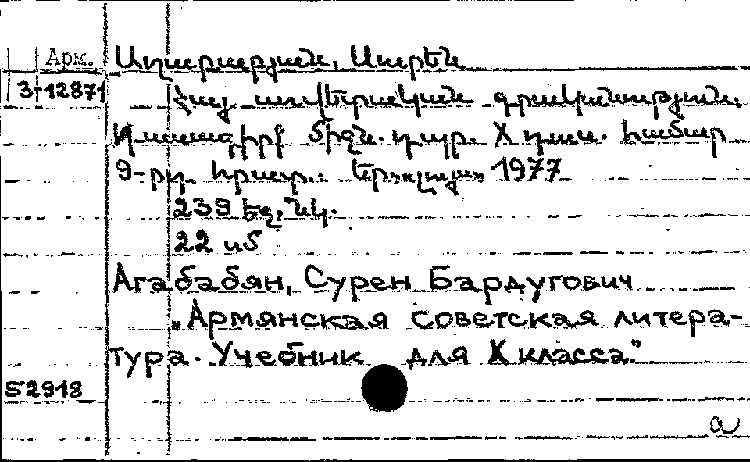 Арм. Աղաբաբյան, Սուրեն
3-12871 Հայ սովետական գրականություն.
Դասագիրք միջն. դպր. X դաս. համար
9-րդ հրատ.. Երևան, 1977
239 եջ, նկ.
22 սմ
Агабабян, Сурен Бардугович
„Армянская советская литера-
тура. Учебник для X класса”
52918
а